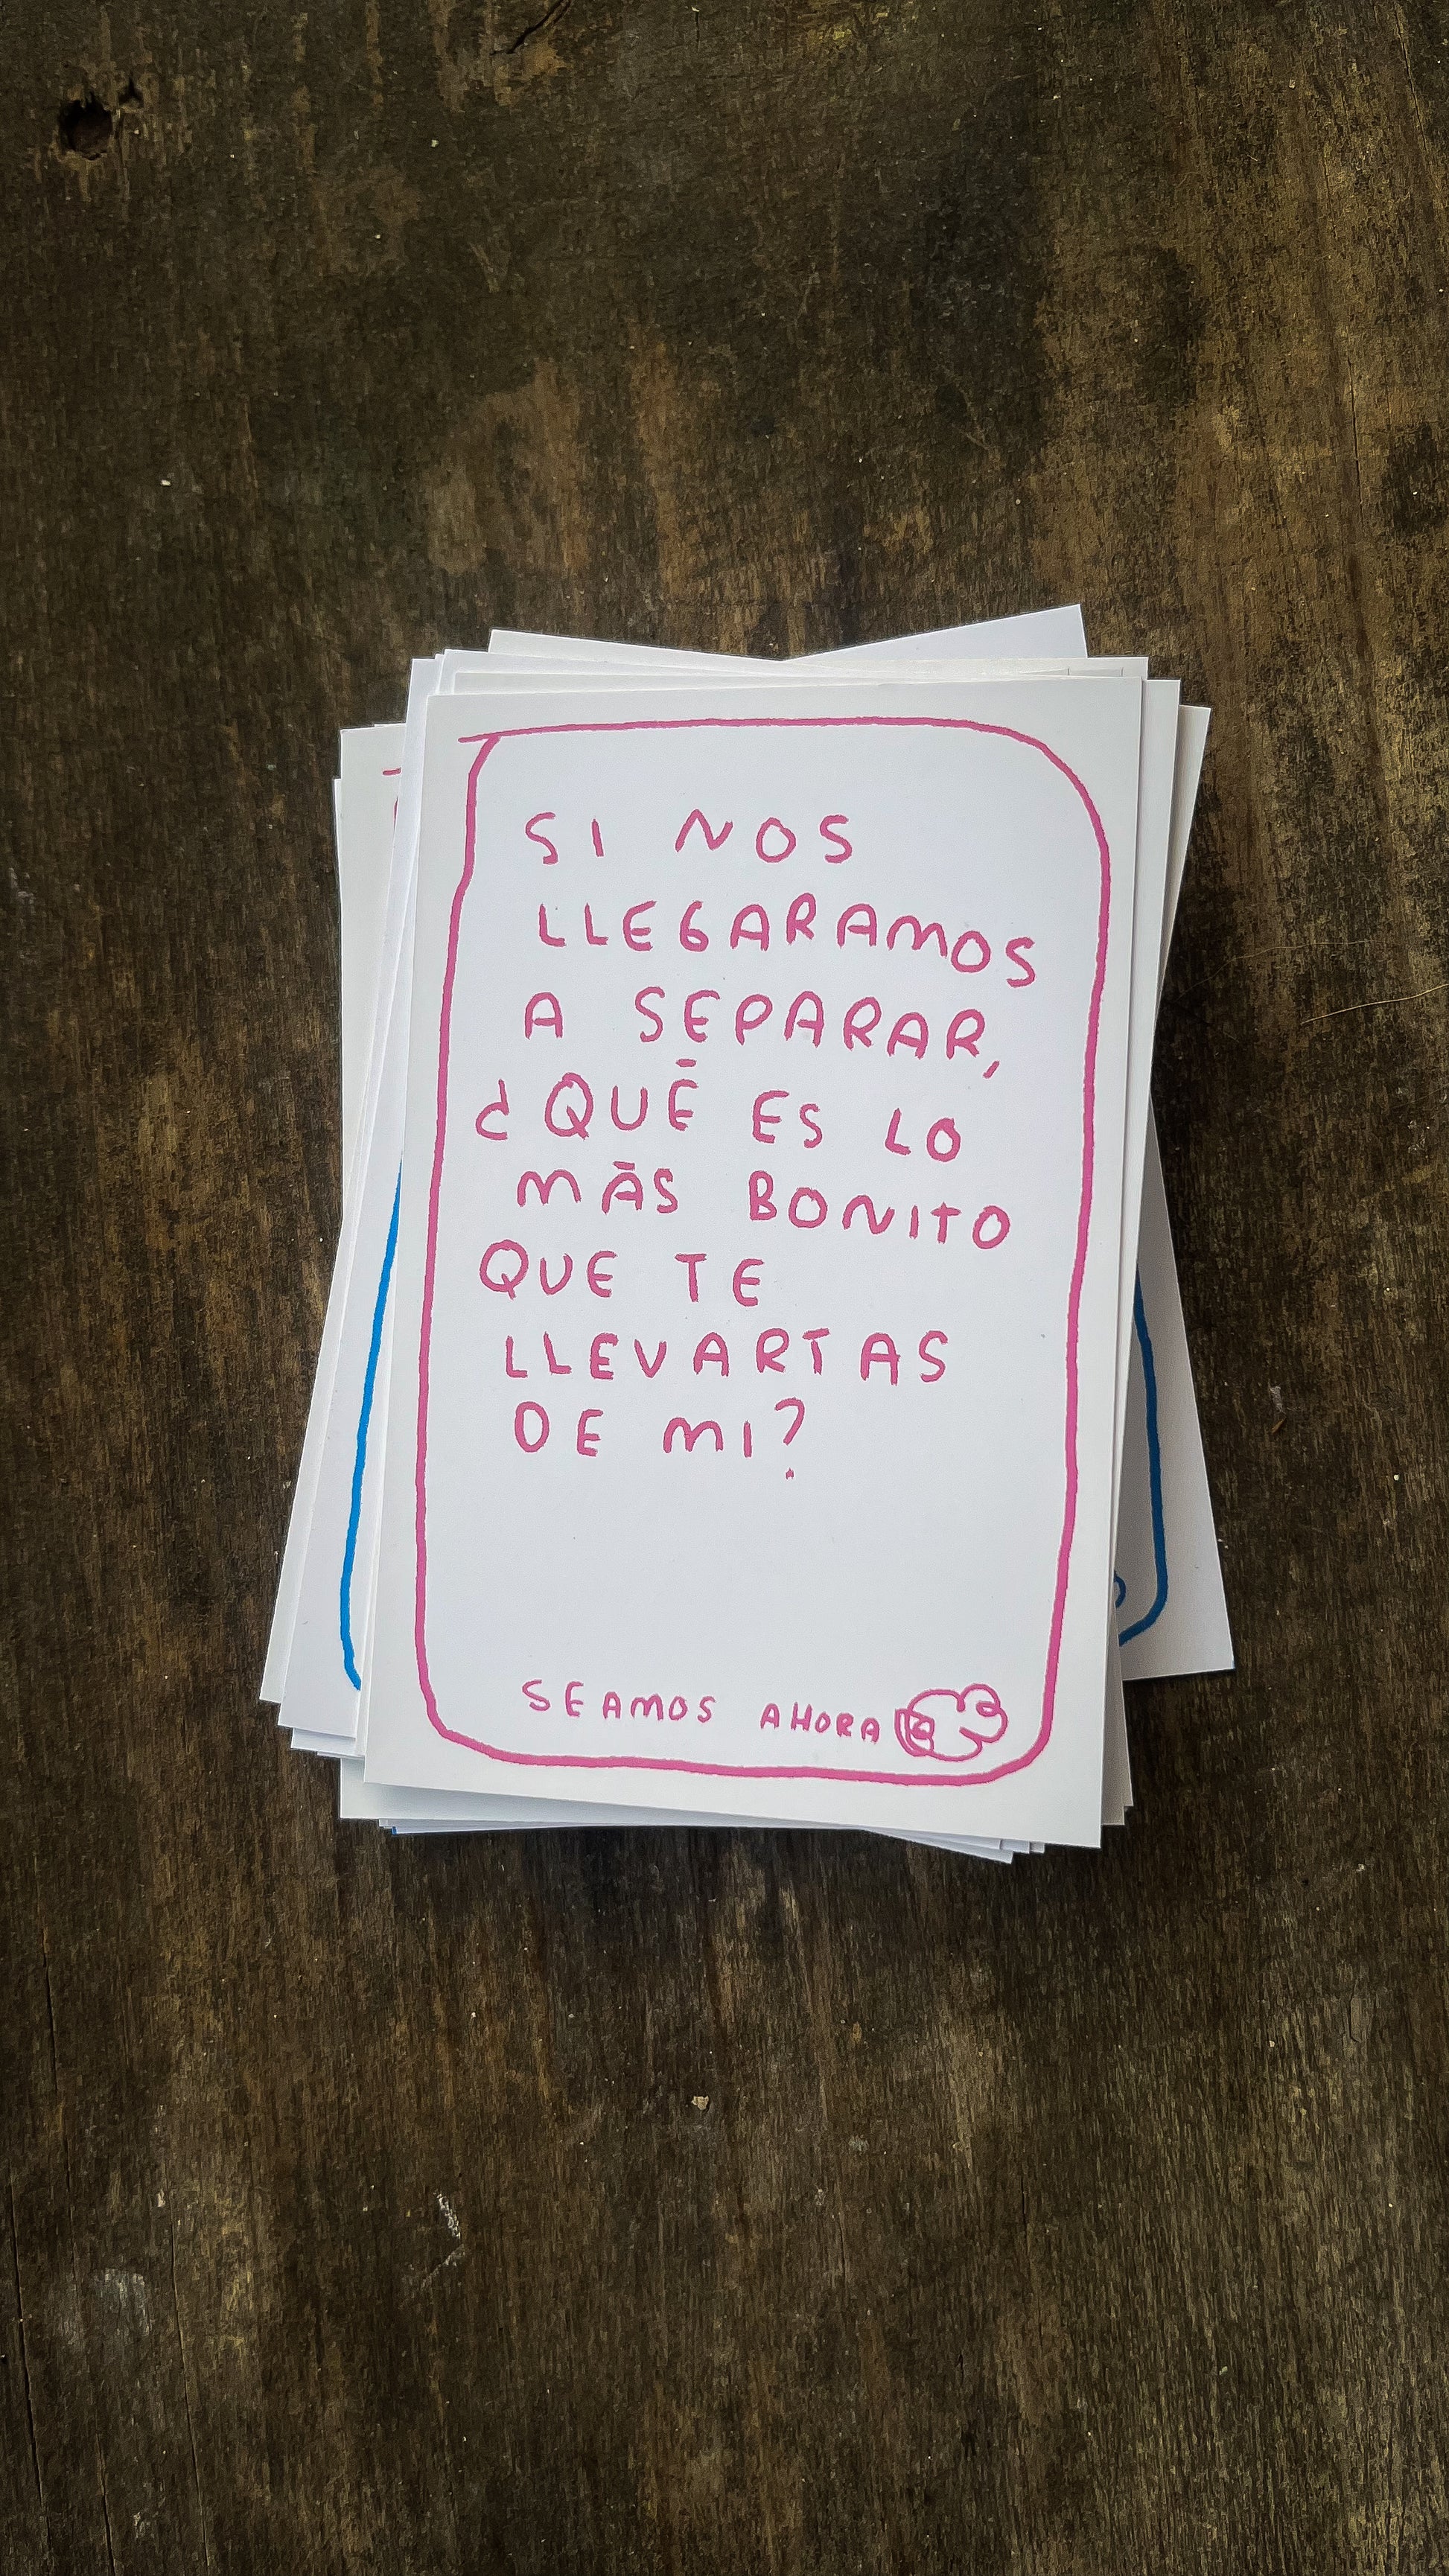 SI NOS
LLEGARAMOS
A SEPARAR,
¿QUÉ ES LO
MÁS BONITO
QUE TE
LLEVARÍAS
DE MI?
SEAMOS AHORA